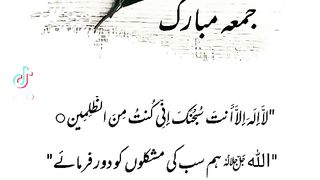 جمعہ مبارک
"لَآ إِلَـٰهَ إِلَّآ أَنتَ سُبْحَـٰنَكَ إِنِّى كُنتُ مِنَ ٱلظَّـٰلِمِينَ ○
"اللہ ﷻ ہم سب کی مشکلوں کو دور فرمائے"